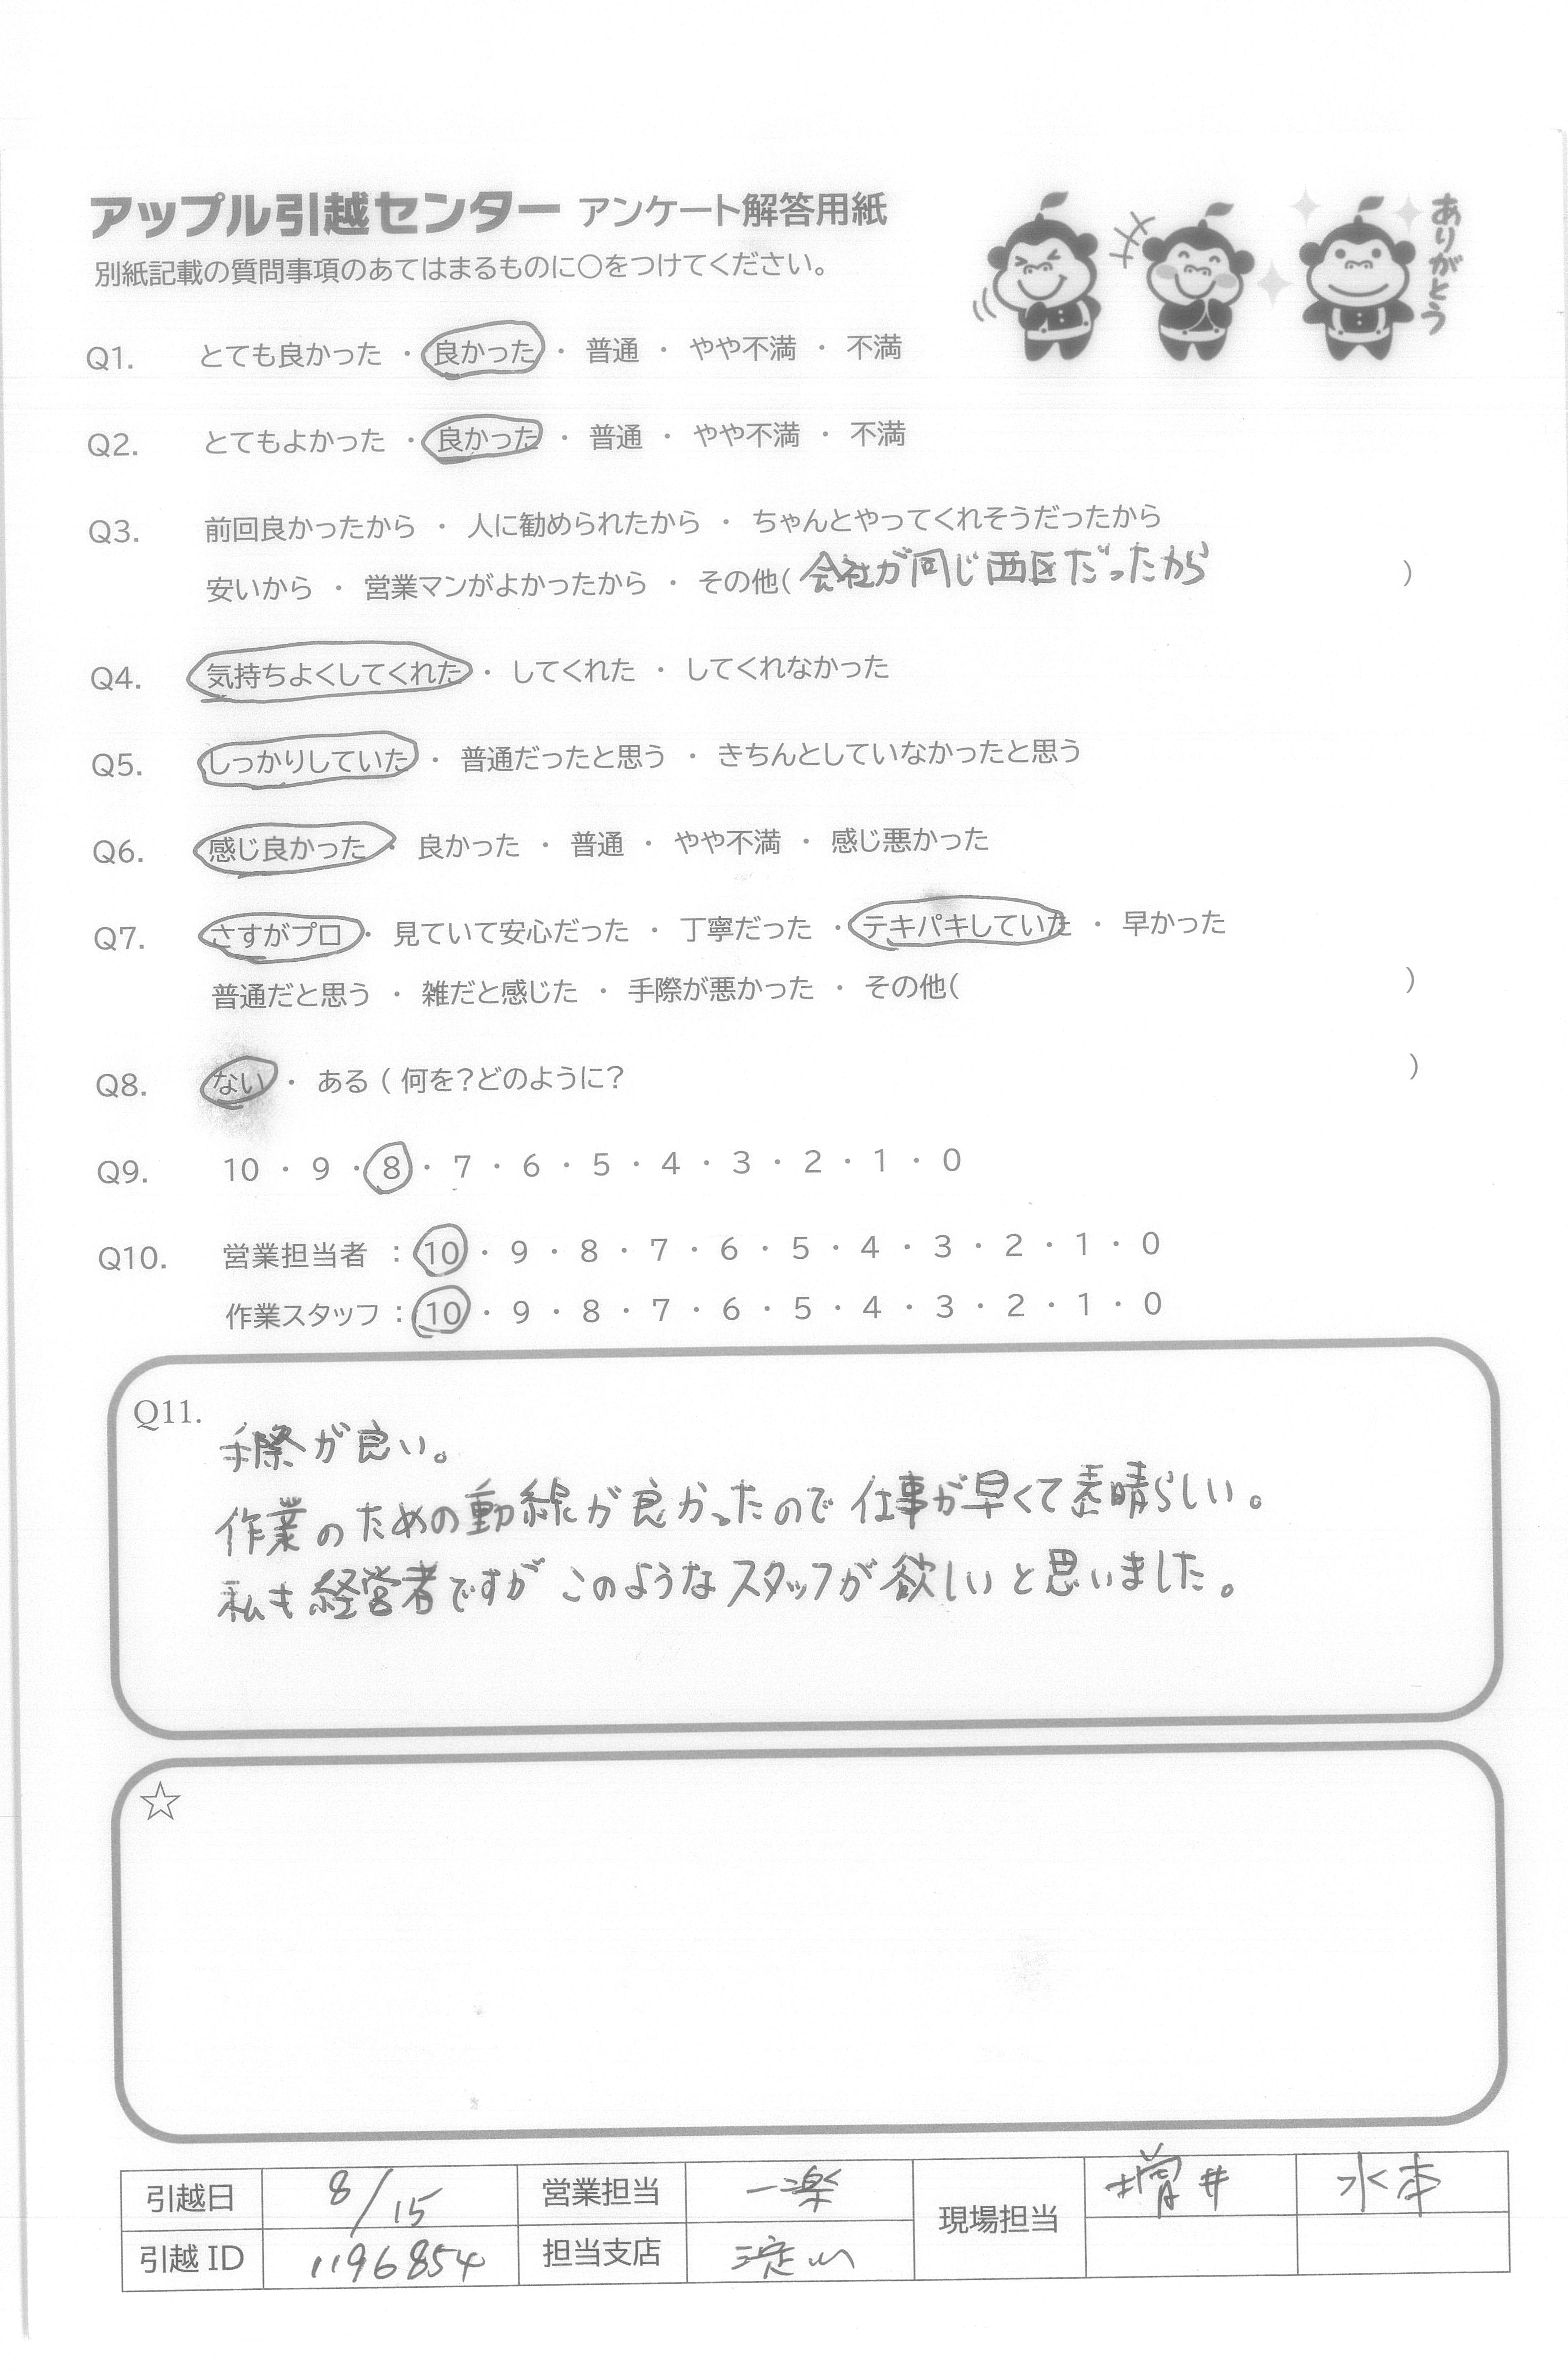 アップル引越センター アンケート解答用紙
ありがとう
別紙記載の質問事項のあてはまるものに○をつけてください。
Q1. とても良かった ・ 良かった ・ 普通 ・ やや不満 ・ 不満
Q2. とてもよかった ・ 良かった ・ 普通 ・ やや不満 ・ 不満
Q3. 前回良かったから ・ 人に勧められたから ・ ちゃんとやってくれそうだったから
安いから ・ 営業マンがよかったから ・ その他( 会社が同じ西区だったから )
Q4. 気持ちよくしてくれた ・ してくれた ・ してくれなかった
Q5. しっかりしていた ・ 普通だったと思う ・ きちんとしていなかったと思う
Q6. 感じ良かった ・ 良かった ・ 普通 ・ やや不満 ・ 感じ悪かった
Q7. さすがプロ ・ 見ていて安心だった ・ 丁寧だった ・ テキパキしていた ・ 早かった
普通だと思う ・ 雑だと感じた ・ 手際が悪かった ・ その他( )
Q8. ない ・ ある ( 何を?どのように? )
Q9. 10 ・ 9 ・ 8 ・ 7 ・ 6 ・ 5 ・ 4 ・ 3 ・ 2 ・ 1 ・ 0
Q10. 営業担当者 : 10 ・ 9 ・ 8 ・ 7 ・ 6 ・ 5 ・ 4 ・ 3 ・ 2 ・ 1 ・ 0
作業スタッフ : 10 ・ 9 ・ 8 ・ 7 ・ 6 ・ 5 ・ 4 ・ 3 ・ 2 ・ 1 ・ 0
Q11. 手際が良い。
作業のための動線が良かったので仕事が早くて素晴らしい。
私も経営者ですがこのようなスタッフが欲しいと思いました。
☆
引越日 8/15 営業担当 一楽 現場担当 増井 水本
引越 ID 1196854 担当支店